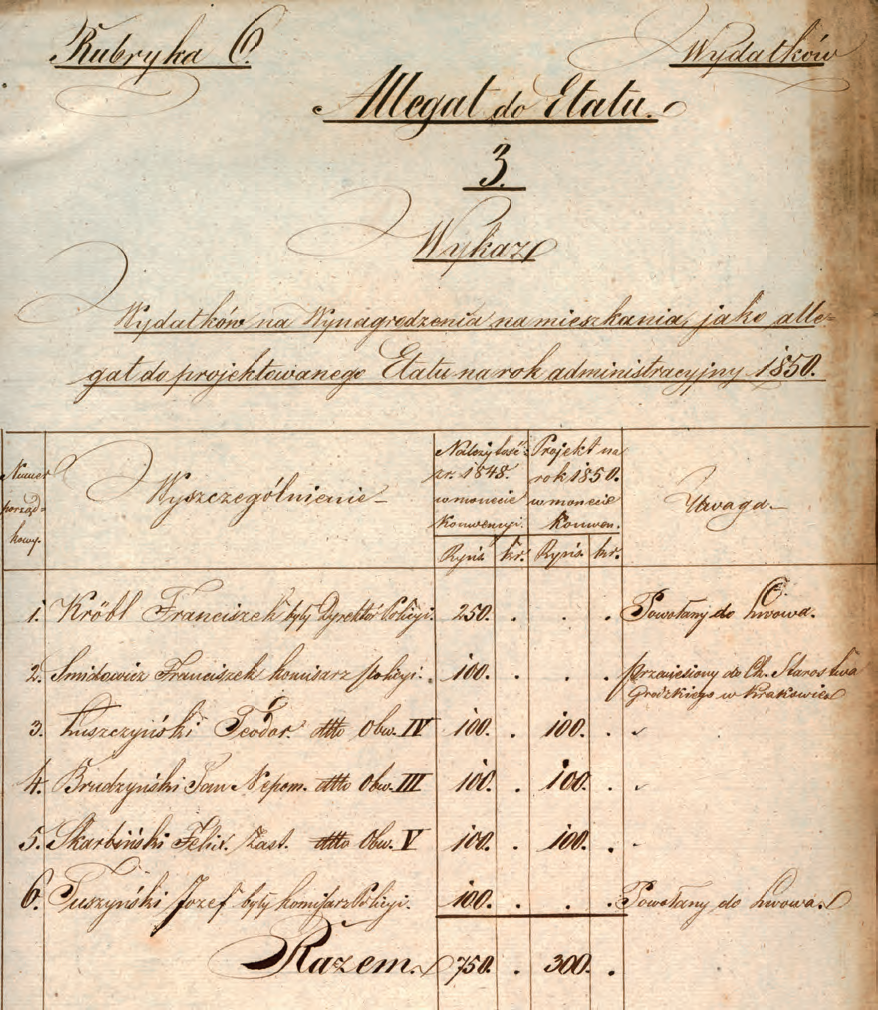 Rubryka 6. Wydatków
Allegat do Etatu.
3.
Wykaz
Wydatków na Wynagrodzenia na mieszkania, jako alle-
gat do projektowanego Etatu na rok administracyjny 1850.
Numer porząd- kowy. Wyszczególnienie Należytość z r. 1848. w monecie Konwencyi. Projekt na rok 1850. w monecie Konwen. Uwaga.
Ryńs. kr. Ryńs. kr.
1. Kröbl Franciszek były Dyrektor Policyi. 250. . . . Powołany do Lwowa.
2. Smidowicz Franciszek komisarz policyi. 100. . . . przeniesiony do Ch. Starostwa
Grodzkiego w Krakowie
3. Łuszczyński Teodor. dtto Obw. IV 100. . 100. . "
4. Brudzyński Jan Nepom. dtto Obw. III 100. . 100. . "
5. Skarbiński Felix. Zast. dtto Obw. V 100. . 100. . "
6. Tuszyński Jozef były komisarz Policyi. 100. . . . Powołany do Lwowa.
Razem 750. . 300. .